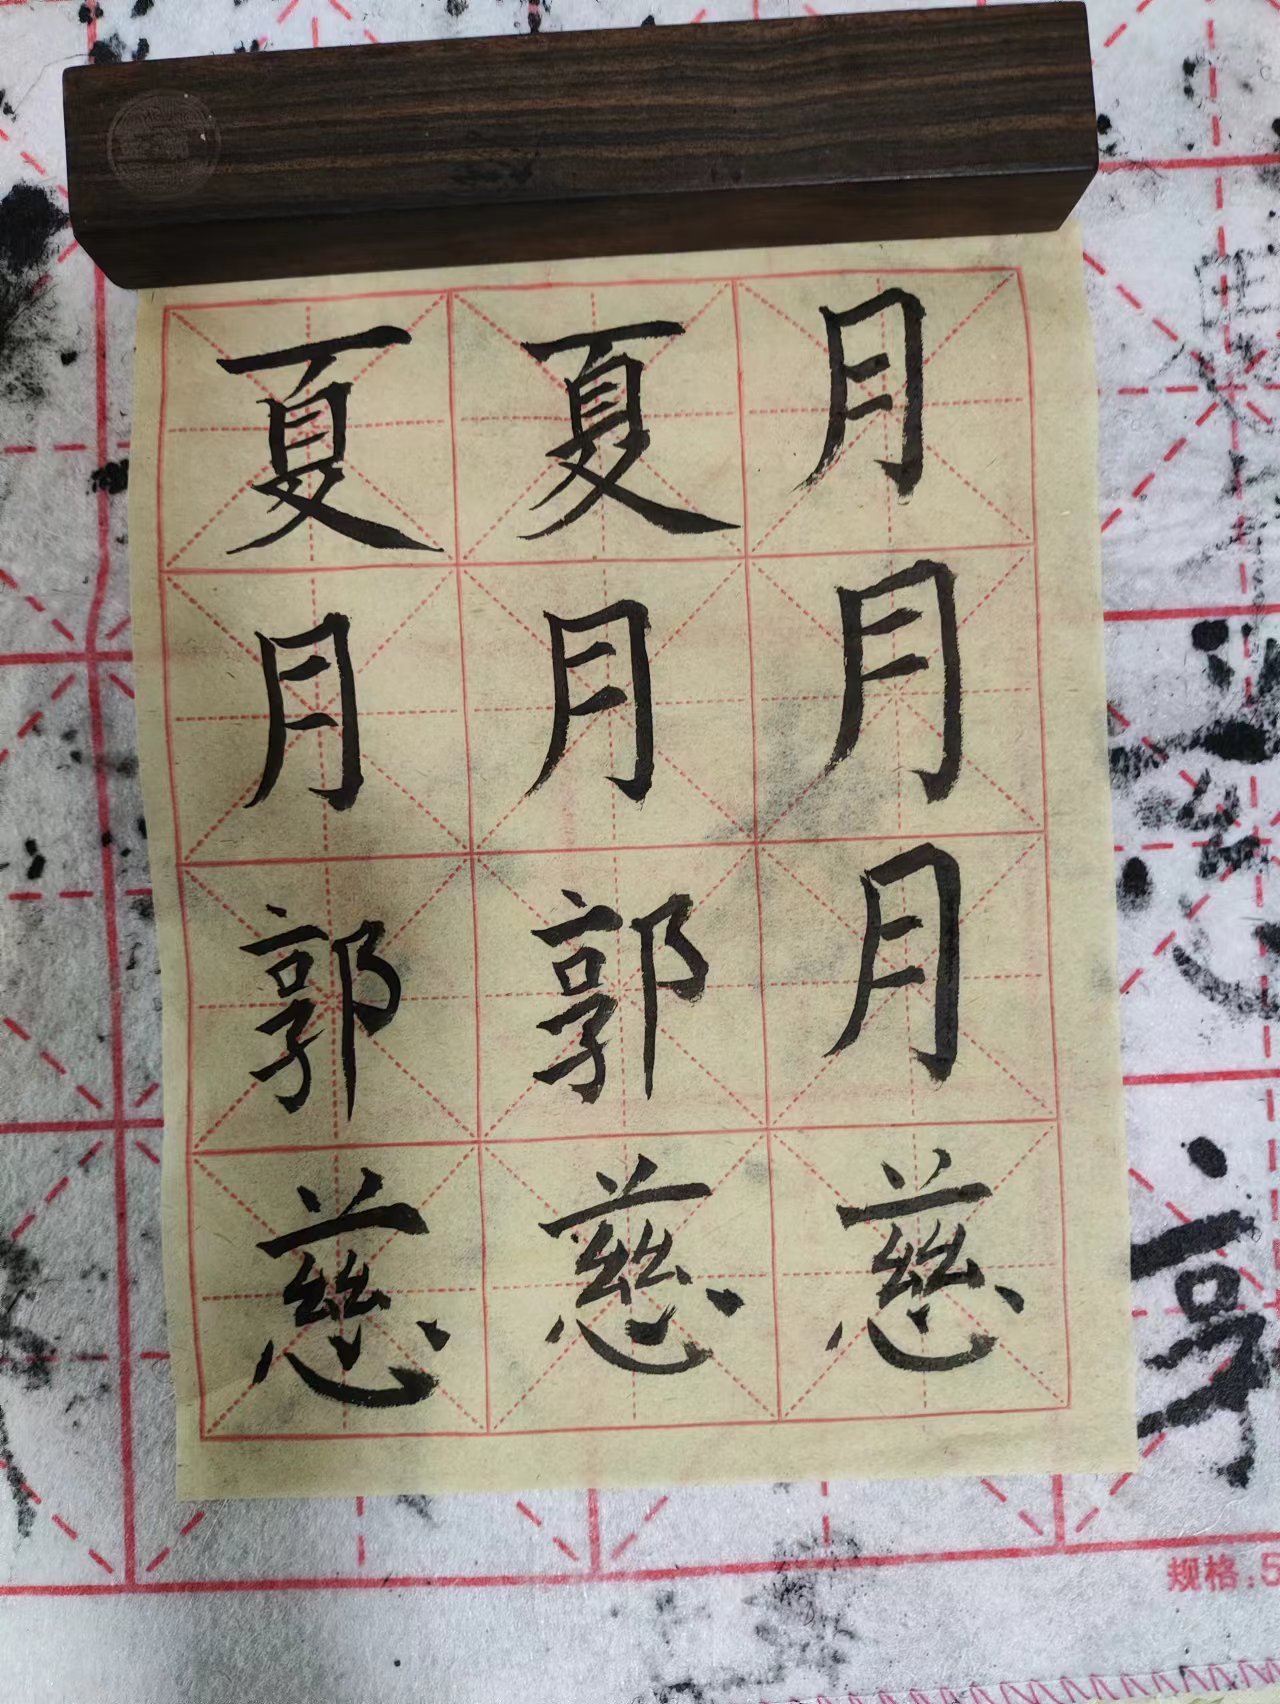 夏夏月
月月月
郭郭月
慈慈慈
享
规格:5